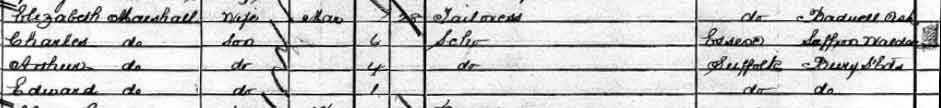 Elizabeth Marshall Wife Mar 28 Tailoress do Bradwell
Charles do Son 6 Scho Essex Saffron Walden
Arthur do do 4 do Suffolk Bury St Eds
Edward do do 1 do do